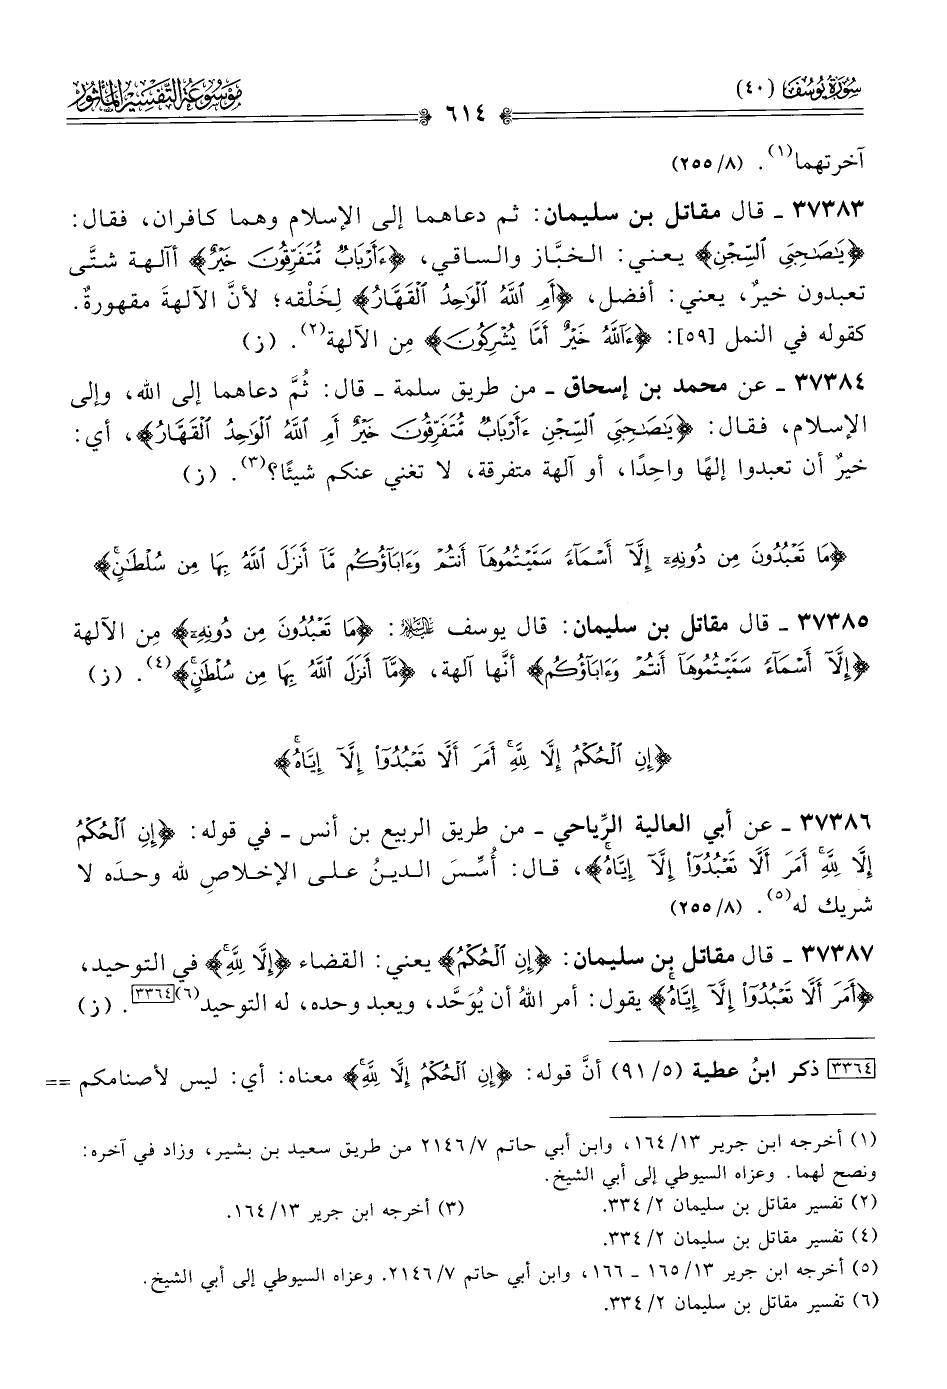 سُورَةُ يُوسُفَ (٤٠)
٦١٤
مَوْسُوعَةُ التَّفْسِيرِ المَأْثُورِ
آخرتهما(١). (٨/ ٢٥٥)
٣٧٣٨٣ ـ قال مقاتل بن سليمان: ثم دعاهما إلى الإسلام وهما كافران، فقال:
﴿يَٰصَىٰحِبَيِ ٱلسِّجْنِ﴾ يعني: الخبَّاز والساقي، ﴿ءَأَرْبَابٌ مُّتَفَرِّقُونَ خَيْرٌ﴾ أآلهة شتَّى
تعبدون خيرٌ، يعني: أفضل، ﴿أَمِ ٱللَّهُ ٱلْوَٰحِدُ ٱلْقَهَّارُ﴾ لِخَلْقه؛ لأنَّ الآلهةَ مقهورةٌ.
كقوله في النمل [٥٩]: ﴿ءَآللَّهُ خَيْرٌ أَمَّا يُشْرِكُونَ﴾ مِن الآلهة(٢). (ز)
٣٧٣٨٤ ـ عن محمد بن إسحاق ـ من طريق سلمة ـ قال: ثُمَّ دعاهما إلى الله، وإلى
الإسلام، فقال: ﴿يَٰصَىٰحِبَيِ ٱلسِّجْنِ ءَأَرْبَابٌ مُّتَفَرِّقُونَ خَيْرٌ أَمِ ٱللَّهُ ٱلْوَٰحِدُ ٱلْقَهَّارُ﴾، أي:
خيرٌ أن تعبدوا إلهًا واحِدًا، أو آلهة متفرقة، لا تغني عنكم شيئًا؟(٣). (ز)
﴿مَا تَعْبُدُونَ مِن دُونِهِۦٓ إِلَّآ أَسْمَآءً سَمَّيْتُمُوهَآ أَنتُمْ وَءَابَآؤُكُم مَّآ أَنزَلَ ٱللَّهُ بِهَا مِن سُلْطَٰنٍۚ﴾
٣٧٣٨٥ ـ قال مقاتل بن سليمان: قال يوسف عليه السلام: ﴿مَا تَعْبُدُونَ مِن دُونِهِۦٓ﴾ مِن الآلهة
﴿إِلَّآ أَسْمَآءً سَمَّيْتُمُوهَآ أَنتُمْ وَءَابَآؤُكُم﴾ أنَّها آلهة، ﴿مَّآ أَنزَلَ ٱللَّهُ بِهَا مِن سُلْطَٰنٍۚ﴾(٤). (ز)
﴿إِنِ ٱلْحُكْمُ إِلَّا لِلَّهِۚ أَمَرَ أَلَّا تَعْبُدُوٓا۟ إِلَّآ إِيَّاهُۚ﴾
٣٧٣٨٦ ـ عن أبي العالية الرِّياحي ـ من طريق الربيع بن أنس ـ في قوله: ﴿إِنِ ٱلْحُكْمُ
إِلَّا لِلَّهِۚ أَمَرَ أَلَّا تَعْبُدُوٓا۟ إِلَّآ إِيَّاهُۚ﴾، قال: أُسِّسَ الدينُ على الإخلاصِ لله وحدَه لا
شريك له(٥). (٨/ ٢٥٥)
٣٧٣٨٧ ـ قال مقاتل بن سليمان: ﴿إِنِ ٱلْحُكْمُ﴾ يعني: القضاء ﴿إِلَّا لِلَّهِۚ﴾ في التوحيد،
﴿أَمَرَ أَلَّا تَعْبُدُوٓا۟ إِلَّآ إِيَّاهُۚ﴾ يقول: أمر اللهُ أن يُوَحَّد، ويعبد وحده، له التوحيد(٦)[٣٣٦٤]. (ز)
[٣٣٦٤] ذكر ابنُ عطية (٥/ ٩١) أنَّ قوله: ﴿إِنِ ٱلْحُكْمُ إِلَّا لِلَّهِۚ﴾ معناه: أي: ليس لأصنامكم ==
(١) أخرجه ابن جرير ١٣/ ١٦٤، وابن أبي حاتم ٧/ ٢١٤٦ من طريق سعيد بن بشير، وزاد في آخره:
ونصح لهما. وعزاه السيوطي إلى أبي الشيخ.
(٢) تفسير مقاتل بن سليمان ٢/ ٣٣٤.
(٣) أخرجه ابن جرير ١٣/ ١٦٤.
(٤) تفسير مقاتل بن سليمان ٢/ ٣٣٤.
(٥) أخرجه ابن جرير ١٣/ ١٦٥ ـ ١٦٦، وابن أبي حاتم ٧/ ٢١٤٦. وعزاه السيوطي إلى أبي الشيخ.
(٦) تفسير مقاتل بن سليمان ٢/ ٣٣٤.